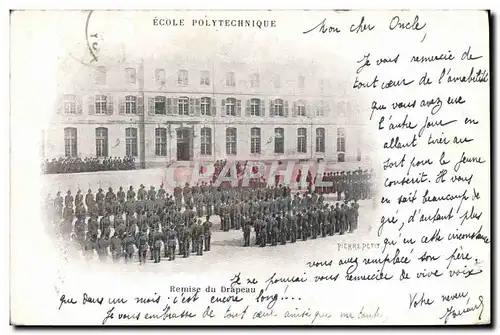 ÉCOLE POLYTECHNIQUE
Mon cher Oncle,
Je vous remercie de
tout cœur de l'amabilité
que vous avez eue
l'autre jour en
allant tirer au
sort pour le jeune
conscrit. Il vous
en sait beaucoup de
gré, d'autant plus
qu'en cette circonstance
vous avez
vous avez remplacé son père.
Je ne pourrai vous remercier de vive voix
que dans un mois. c'est encore
bien long....
Je vous embrasse de tout cœur ainsi que ma tante.
Votre neveu,
CARPHI
PIERRE PETIT
Remise du Drapeau